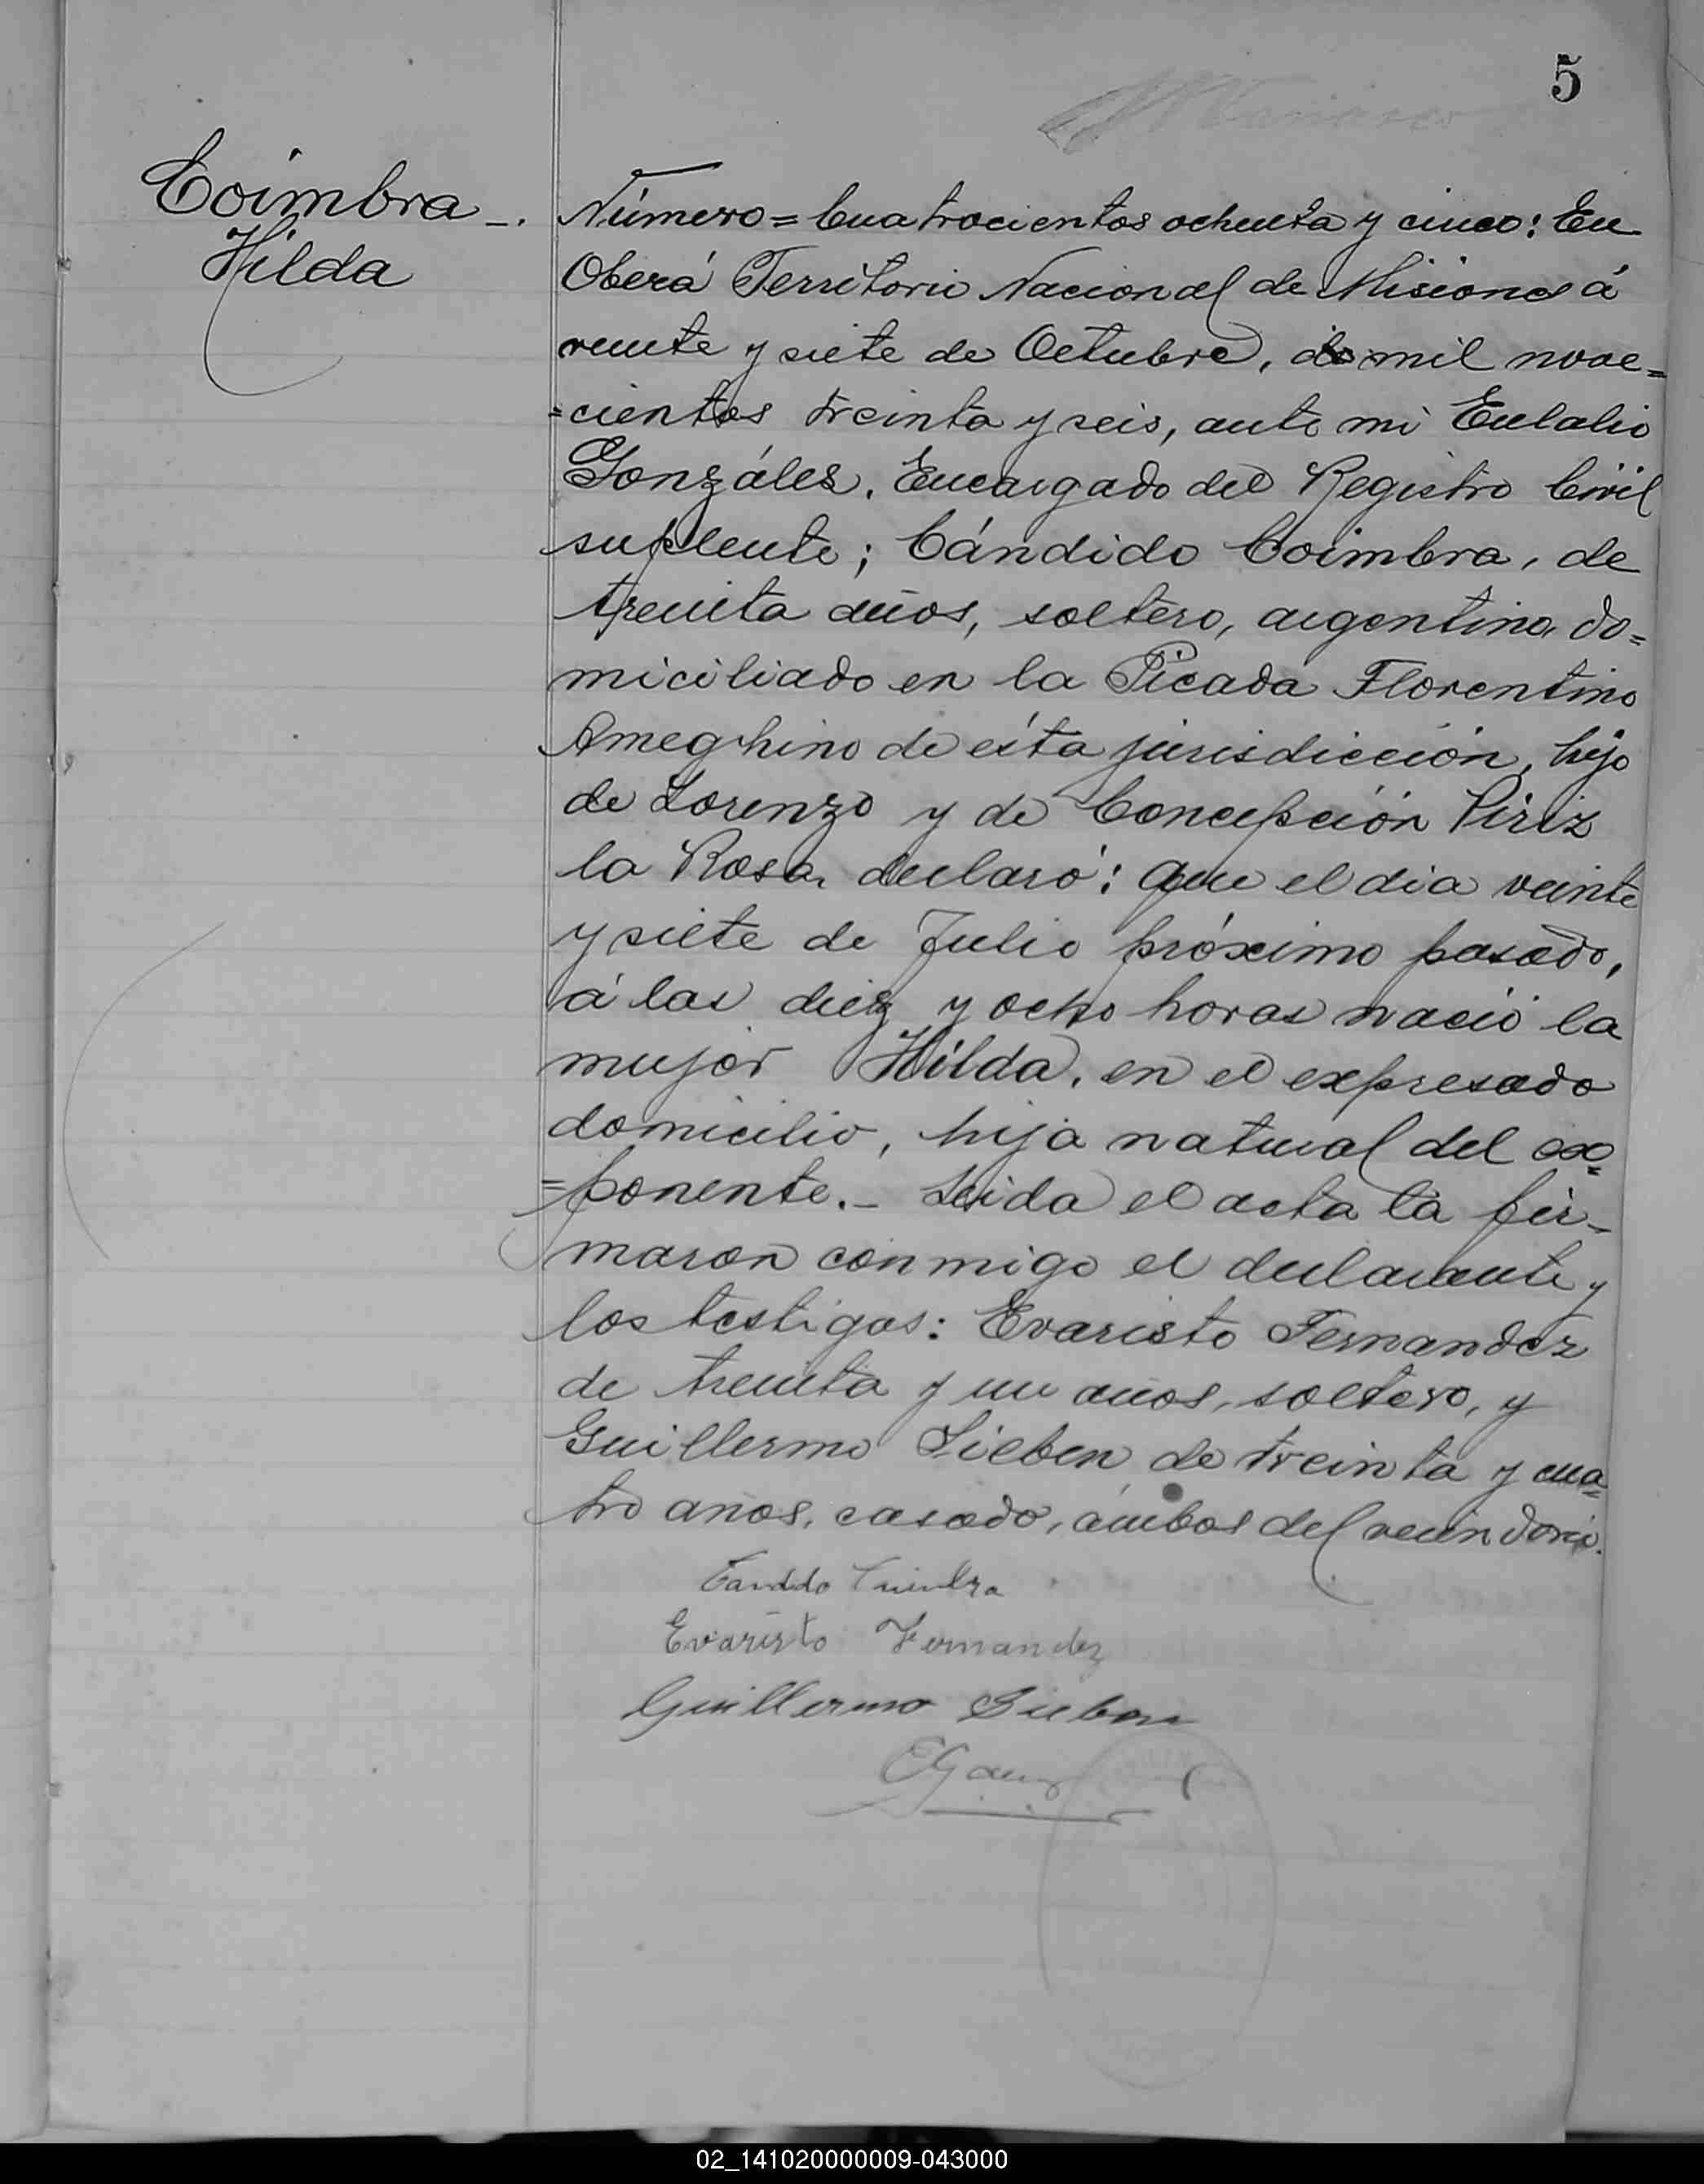 5
Coimbra_.
Hilda
Número=Cuatrocientos ochenta y cinco: En
Oberá Territorio Nacional de Misiones á
veinte y siete de Octubre, de mil nove=
=cientos treinta y seis, ante mi Eulalio
Gonzáles, Encargado del Registro Civil
suplente; Cándido Coimbra, de
treinta años, soltero, argentino, do=
miciliado en la Picada Florentino
Ameghino de ésta jurisdicción, hijo
de Lorenzo y de Concepción Píriz
la Rosa, declaró: Que el dia veinte
y siete de Julio próximo pasado,
á las diez y ocho horas nació la
mujer Hilda, en el expresado
domicilio, hija natural del ex=
=ponente._ Leida el acta la fir-
maron conmigo el declarante y
los testigos: Evaristo Fernandez
de treinta y un años, soltero, y
Guillermo Sieben de treinta y cua=
tro años, casado, ámbos del vecindario.
Candido Coimbra
Evaristo Fernandez
Guillermo Sieben
02_141020000009-043000